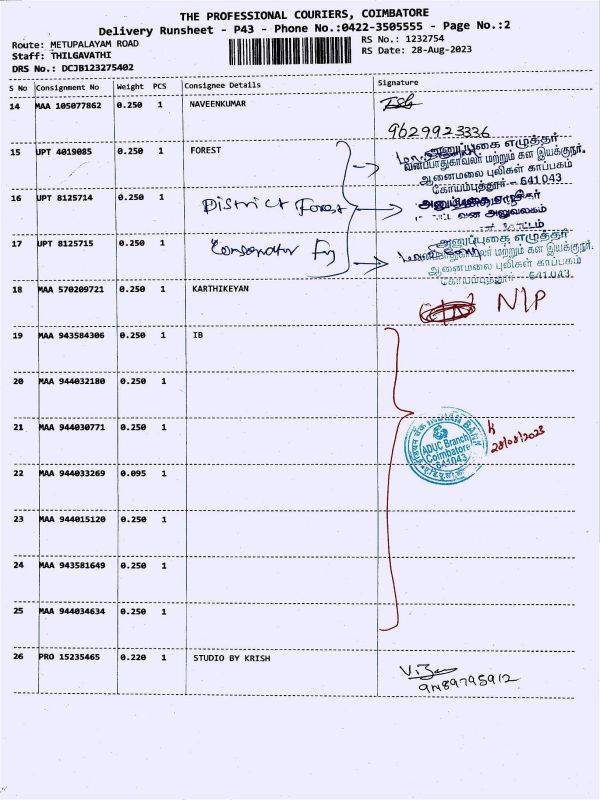 THE PROFESSIONAL COURIERS, COIMBATORE
Delivery Runsheet - P43 - Phone No.:0422-3505555 - Page No.:2
Route: METUPALAYAM ROAD
RS No.: 1232754
Staff: THILGAVATHI
RS Date: 28-Aug-2023
DRS No.: DCJB123275402
S No Consignment No Weight PCS Consignee Details Signature
14 MAA 105077862 0.250 1 NAVEENKUMAR
9629923336
15 UPT 4019085 0.250 1 FOREST
அனுப்புகை எழுத்தர்
வனப்பாதுகாவலர் மற்றும் கள இயக்குநர்.
ஆனைமலை புலிகள் காப்பகம்
கோயம்புத்தூர் - 641043
16 UPT 8125714 0.250 1
District Forest
வன அலுவலகம்
17 UPT 8125715 0.250 1
அனுப்புகை எழுத்தர்
மற்றும் கள இயக்குநர்.
ஆனைமலை புலிகள் காப்பகம்
கோயம்புத்தூர் - 641043
18 MAA 570209721 0.250 1 KARTHIKEYAN
N/P
19 MAA 943584306 0.250 1 IB
20 MAA 944032180 0.250 1
21 MAA 944030771 0.250 1
INDIAN BANK
ADUC Branch
Coimbatore
641043
28/08/2023
22 MAA 944033269 0.095 1
23 MAA 944015120 0.250 1
24 MAA 943581649 0.250 1
25 MAA 944034634 0.250 1
26 PRO 15235465 0.220 1 STUDIO BY KRISH